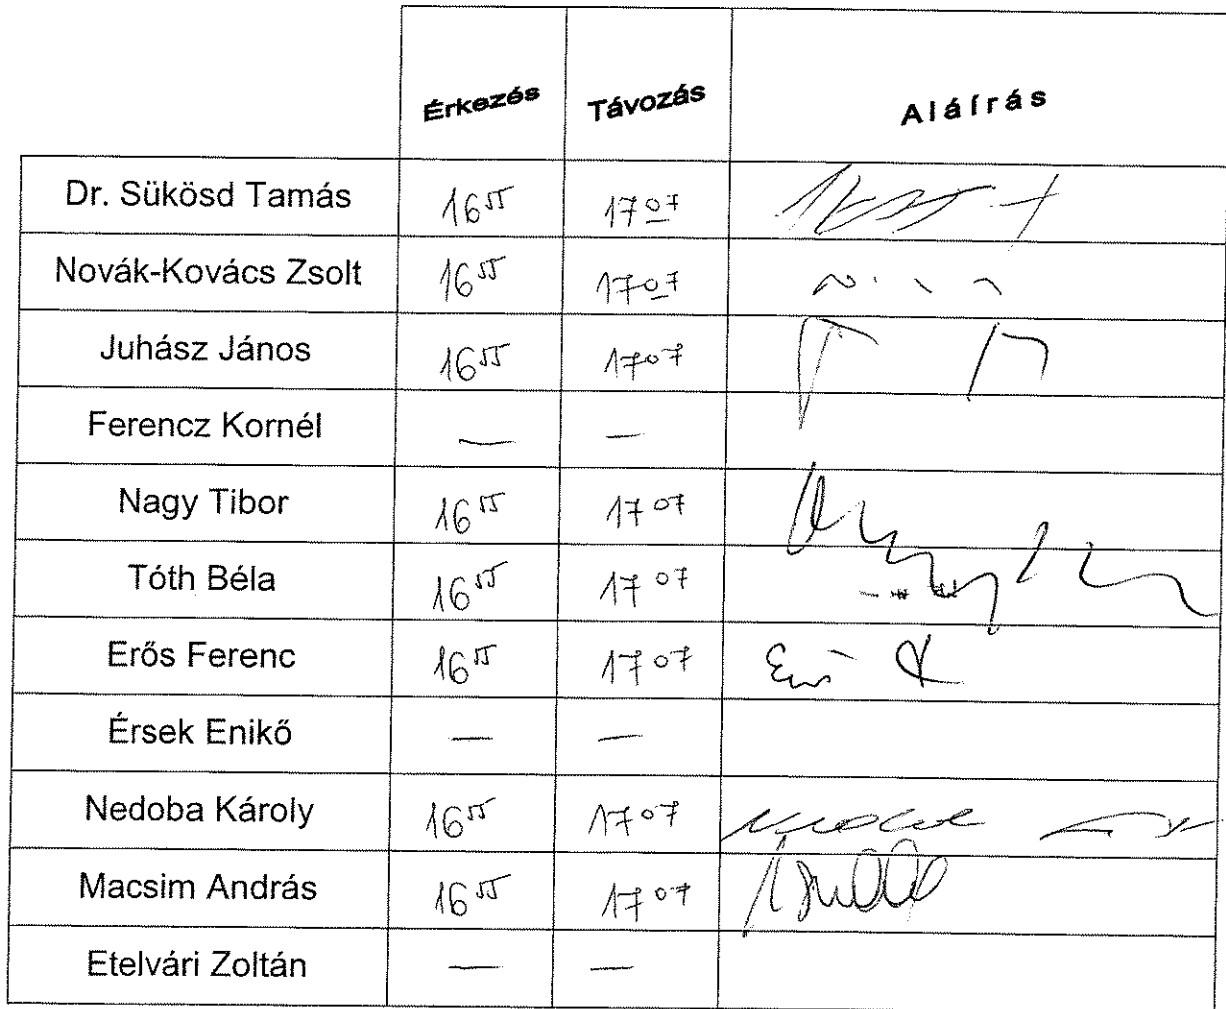 Érkezés Távozás Aláírás
Dr. Sükösd Tamás 16⁵⁵ 17⁰⁷
Novák-Kovács Zsolt 16⁵⁵ 17⁰⁷
Juhász János 16⁵⁵ 17⁰⁷
Ferencz Kornél — —
Nagy Tibor 16⁵⁵ 17⁰⁷
Tóth Béla 16⁵⁵ 17⁰⁷
Erős Ferenc 16⁵⁵ 17⁰⁷
Érsek Enikő — —
Nedoba Károly 16⁵⁵ 17⁰⁷
Macsim András 16⁵⁵ 17⁰⁷
Etelvári Zoltán — —